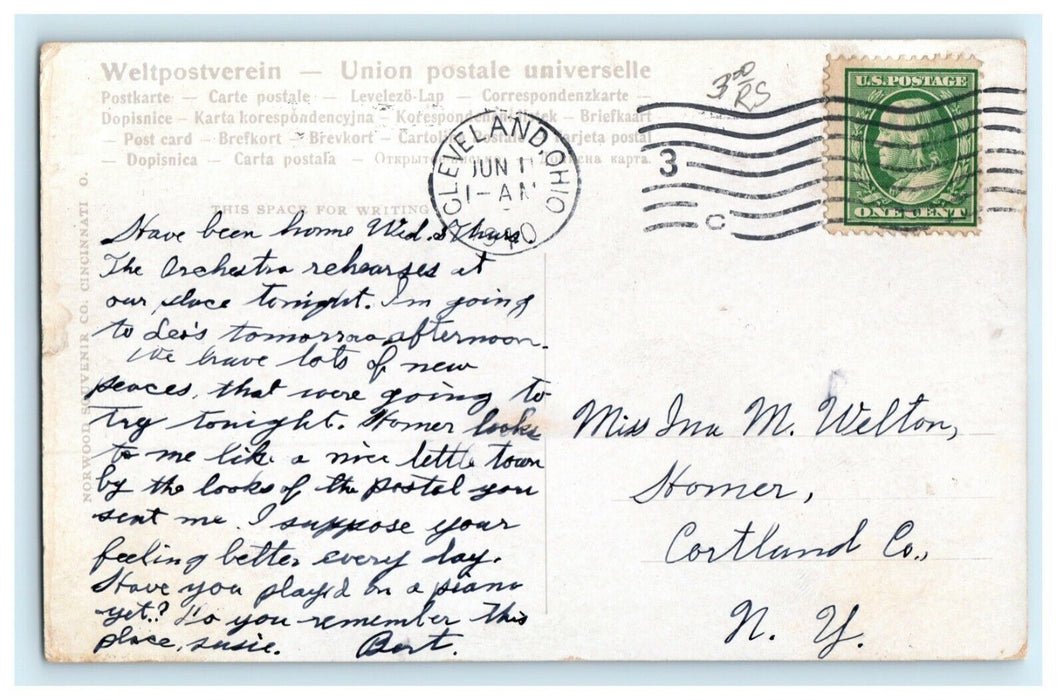 Weltpostverein — Union postale universelle
Postkarte — Carte postale — Levelező-Lap — Correspondenzkarte —
Dopisnice — Karta korespondencyjna — Korespondenční lístek — Briefkaart
— Post card — Brefkort — Brevkort — Cartolina postale — Tarjeta postal
— Dopisnica — Carta postala —
THIS SPACE FOR WRITING
NORWOOD SOUVENIR CO. CINCINNATI O.
3.00
RS
CLEVELAND, OHIO
JUN 1
1-AM
3
C
U.S. POSTAGE
ONE CENT
Have been home Wed. & Thurs.
The Orchestra rehearses at
our place tonight. I'm going
to Leo's tomorrow afternoon.
We have lots of new
peaces, that were going to
try tonight. Homer looks
to me like a nice lettle town
by the looks of the postal you
sent me. I suppose your
feeling better every day.
Have you played on a piano
yet? Do you remember this
place, susie. Bert.
Miss Ina M. Welton,
Homer,
Cortland Co.,
N. Y.